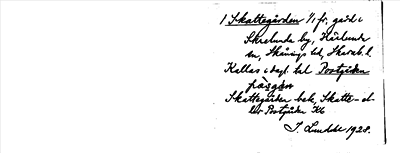 1 Skattegården 1/1 fr. gård i
Skrelunda by, Härlunda
sn, Skånings hd, Skarab. l.
Kallas i dagl. tal Postgården
Skattegården bet. Skatte- el-
ler Postgården Kb
J. Lundahl 1928.